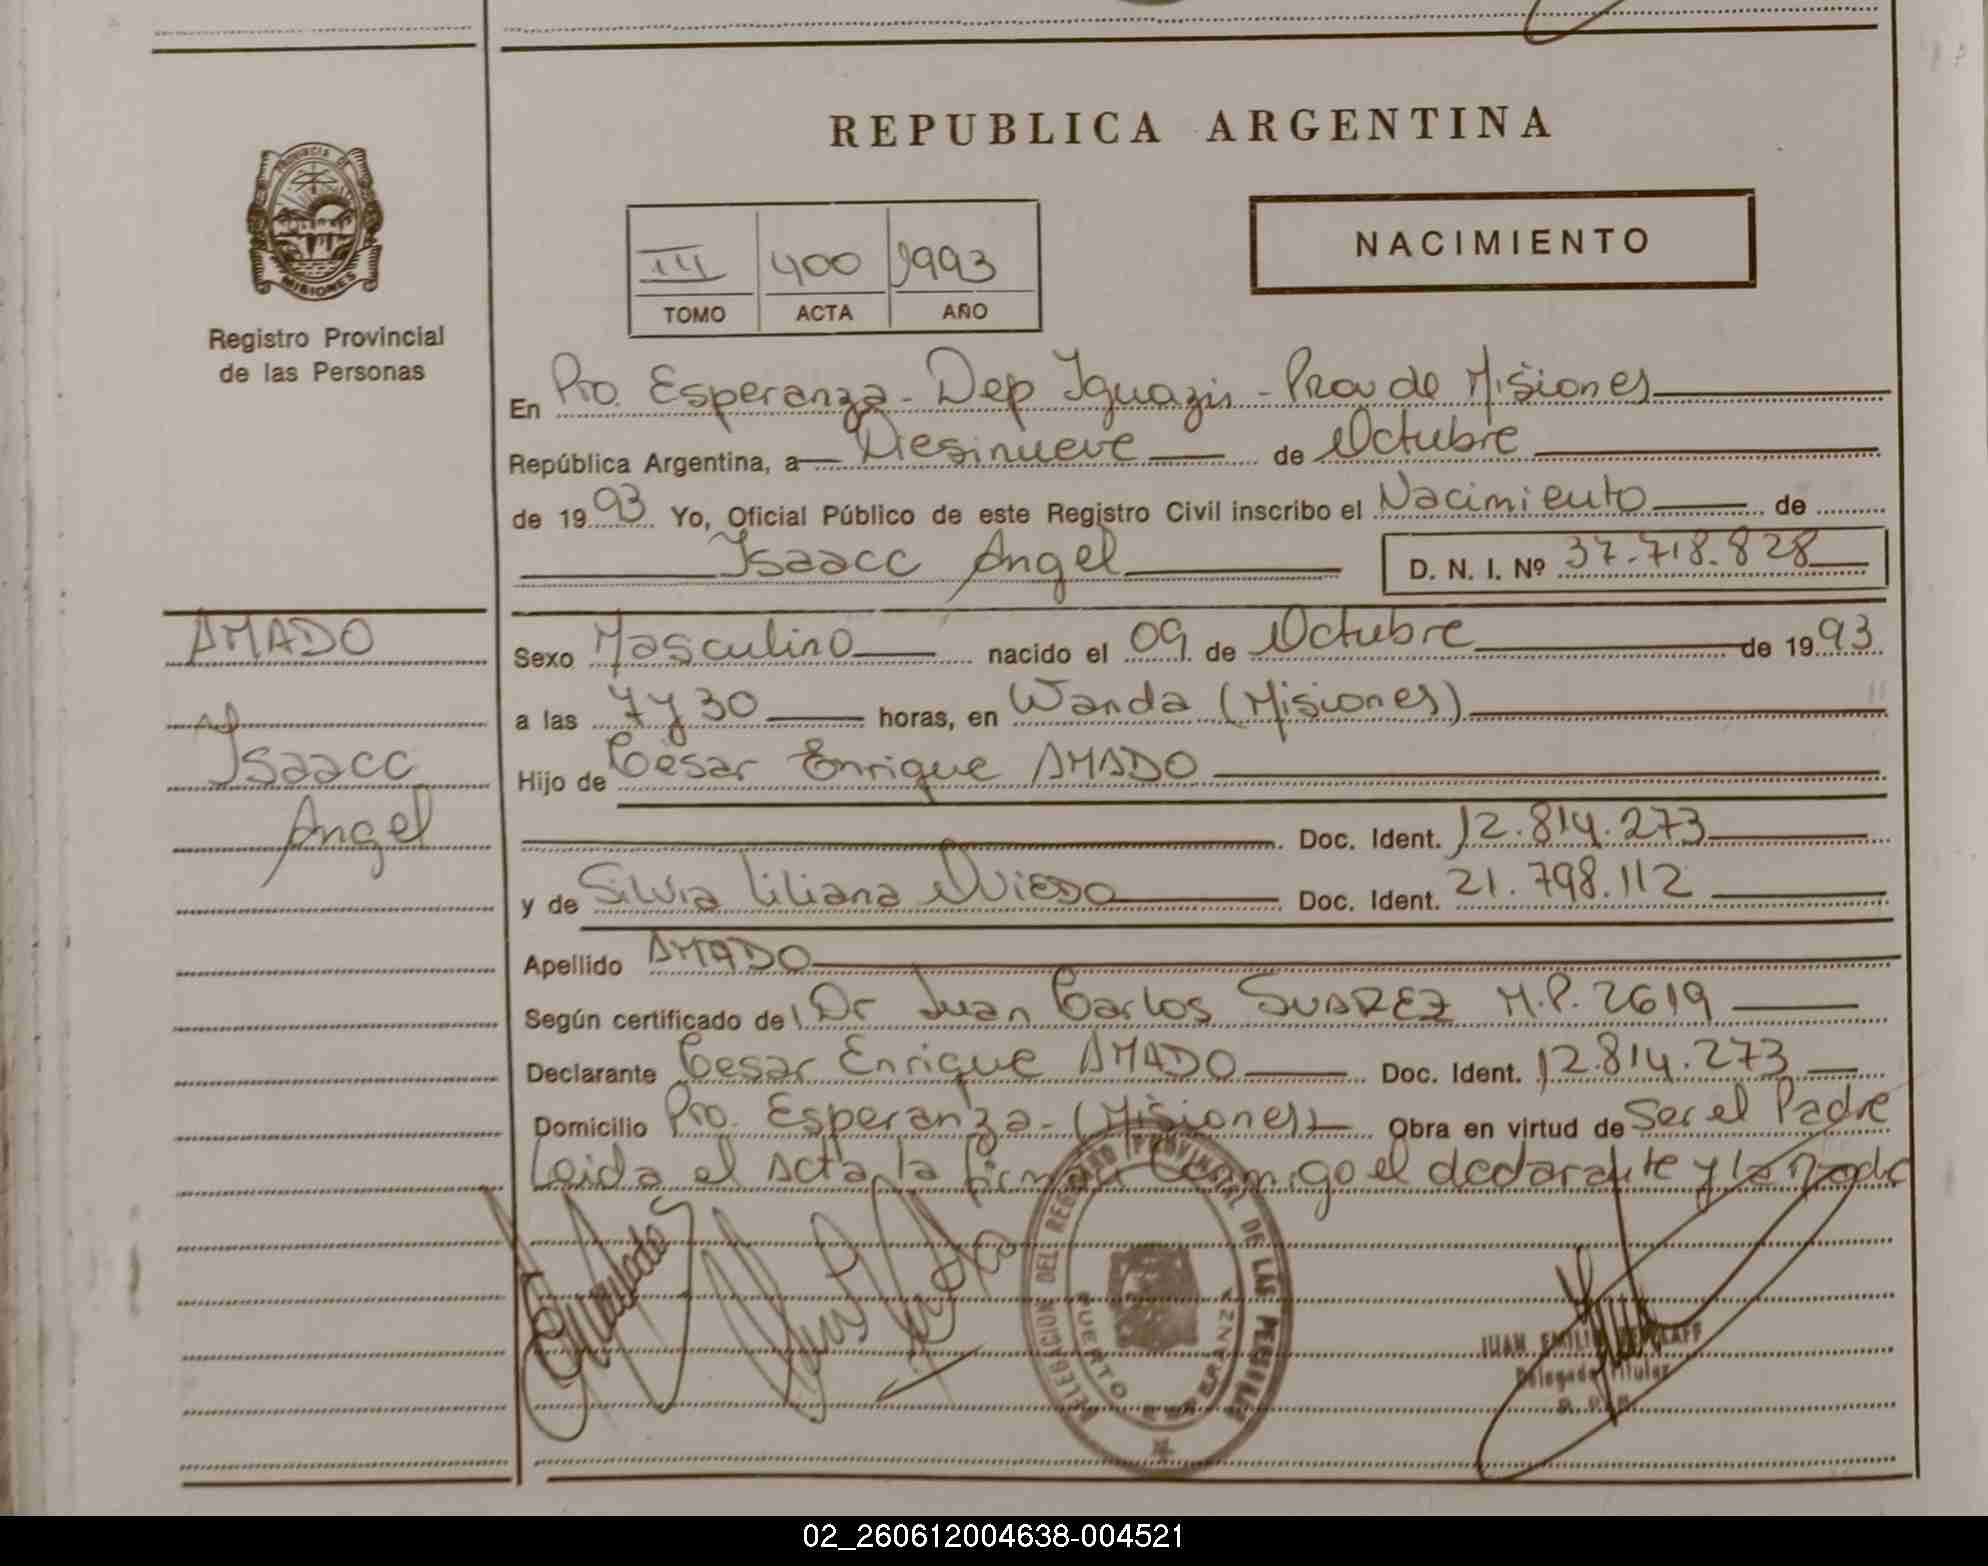 REPUBLICA ARGENTINA
PROVINCIA DE
MISIONES
Registro Provincial
de las Personas
III 400 1993
TOMO ACTA AÑO
NACIMIENTO
En Pto. Esperanza - Dep Iguazú - Prov de Misiones
República Argentina, a Diesinueve de Octubre
de 1993 Yo, Oficial Público de este Registro Civil inscribo el Nacimiento de
Isaacc Angel D. N. I. Nº 37.718.828
AMADO
Isaacc
Angel
Sexo Masculino nacido el 09 de Octubre de 1993
a las 7 y 30 horas, en Wanda (Misiones)
Hijo de Cesar Enrique AMADO
Doc. Ident. 12.814.273
y de Silvia Liliana Doc. Ident. 21.798.112
Apellido AMADO
Según certificado del Dr Juan Carlos SUAREZ M.P. 2619
Declarante Cesar Enrique AMADO Doc. Ident. 12.814.273
Domicilio Pto. Esperanza - (Misiones) Obra en virtud de Ser el Padre
Leida el acta la firman Conmigo el declarante y la Madre
DELEGACION DEL REGISTRO PROVINCIAL DE LAS PERSONAS
PUERTO ESPERANZA
JUAN EMILIO
Delegado Titular
02_260612004638-004521